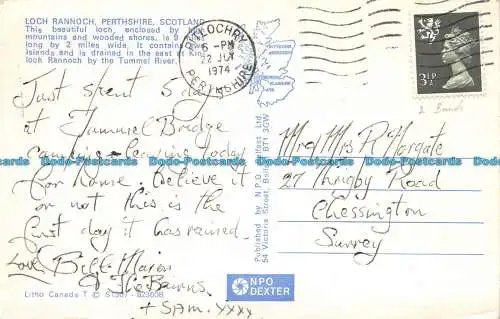 LOCH RANNOCH, PERTHSHIRE, SCOTLAND
This beautiful loch, enclosed by
mountains and wooded shores, is 9 miles
long by 2 miles wide. It contains
islands and is drained in the east at Kin
loch Rannoch by the Tummel River.
PITLOCHRY
5-PM
22 JLY
1974
PERTHSHIRE
3½P
2 Bands
Just spent 5 days
at Tummel Bridge
camping - leaving today
for home. Believe it
or not this is the
first day it has rained.
Love Bill & Marion
& The Bairns.
+ SAM. xxxx
Mr & Mrs R Norgate
27 Thrigby Road
Chessington
Surrey
Published by N P O Belfast Ltd.
54 Victoria Street, Belfast BT1 3GW
NPO
DEXTER
Litho Canada T © S1307 - 82360B
Dodo-Postcards Dodo-Postcards Dodo-Postcards Dodo-Postcards